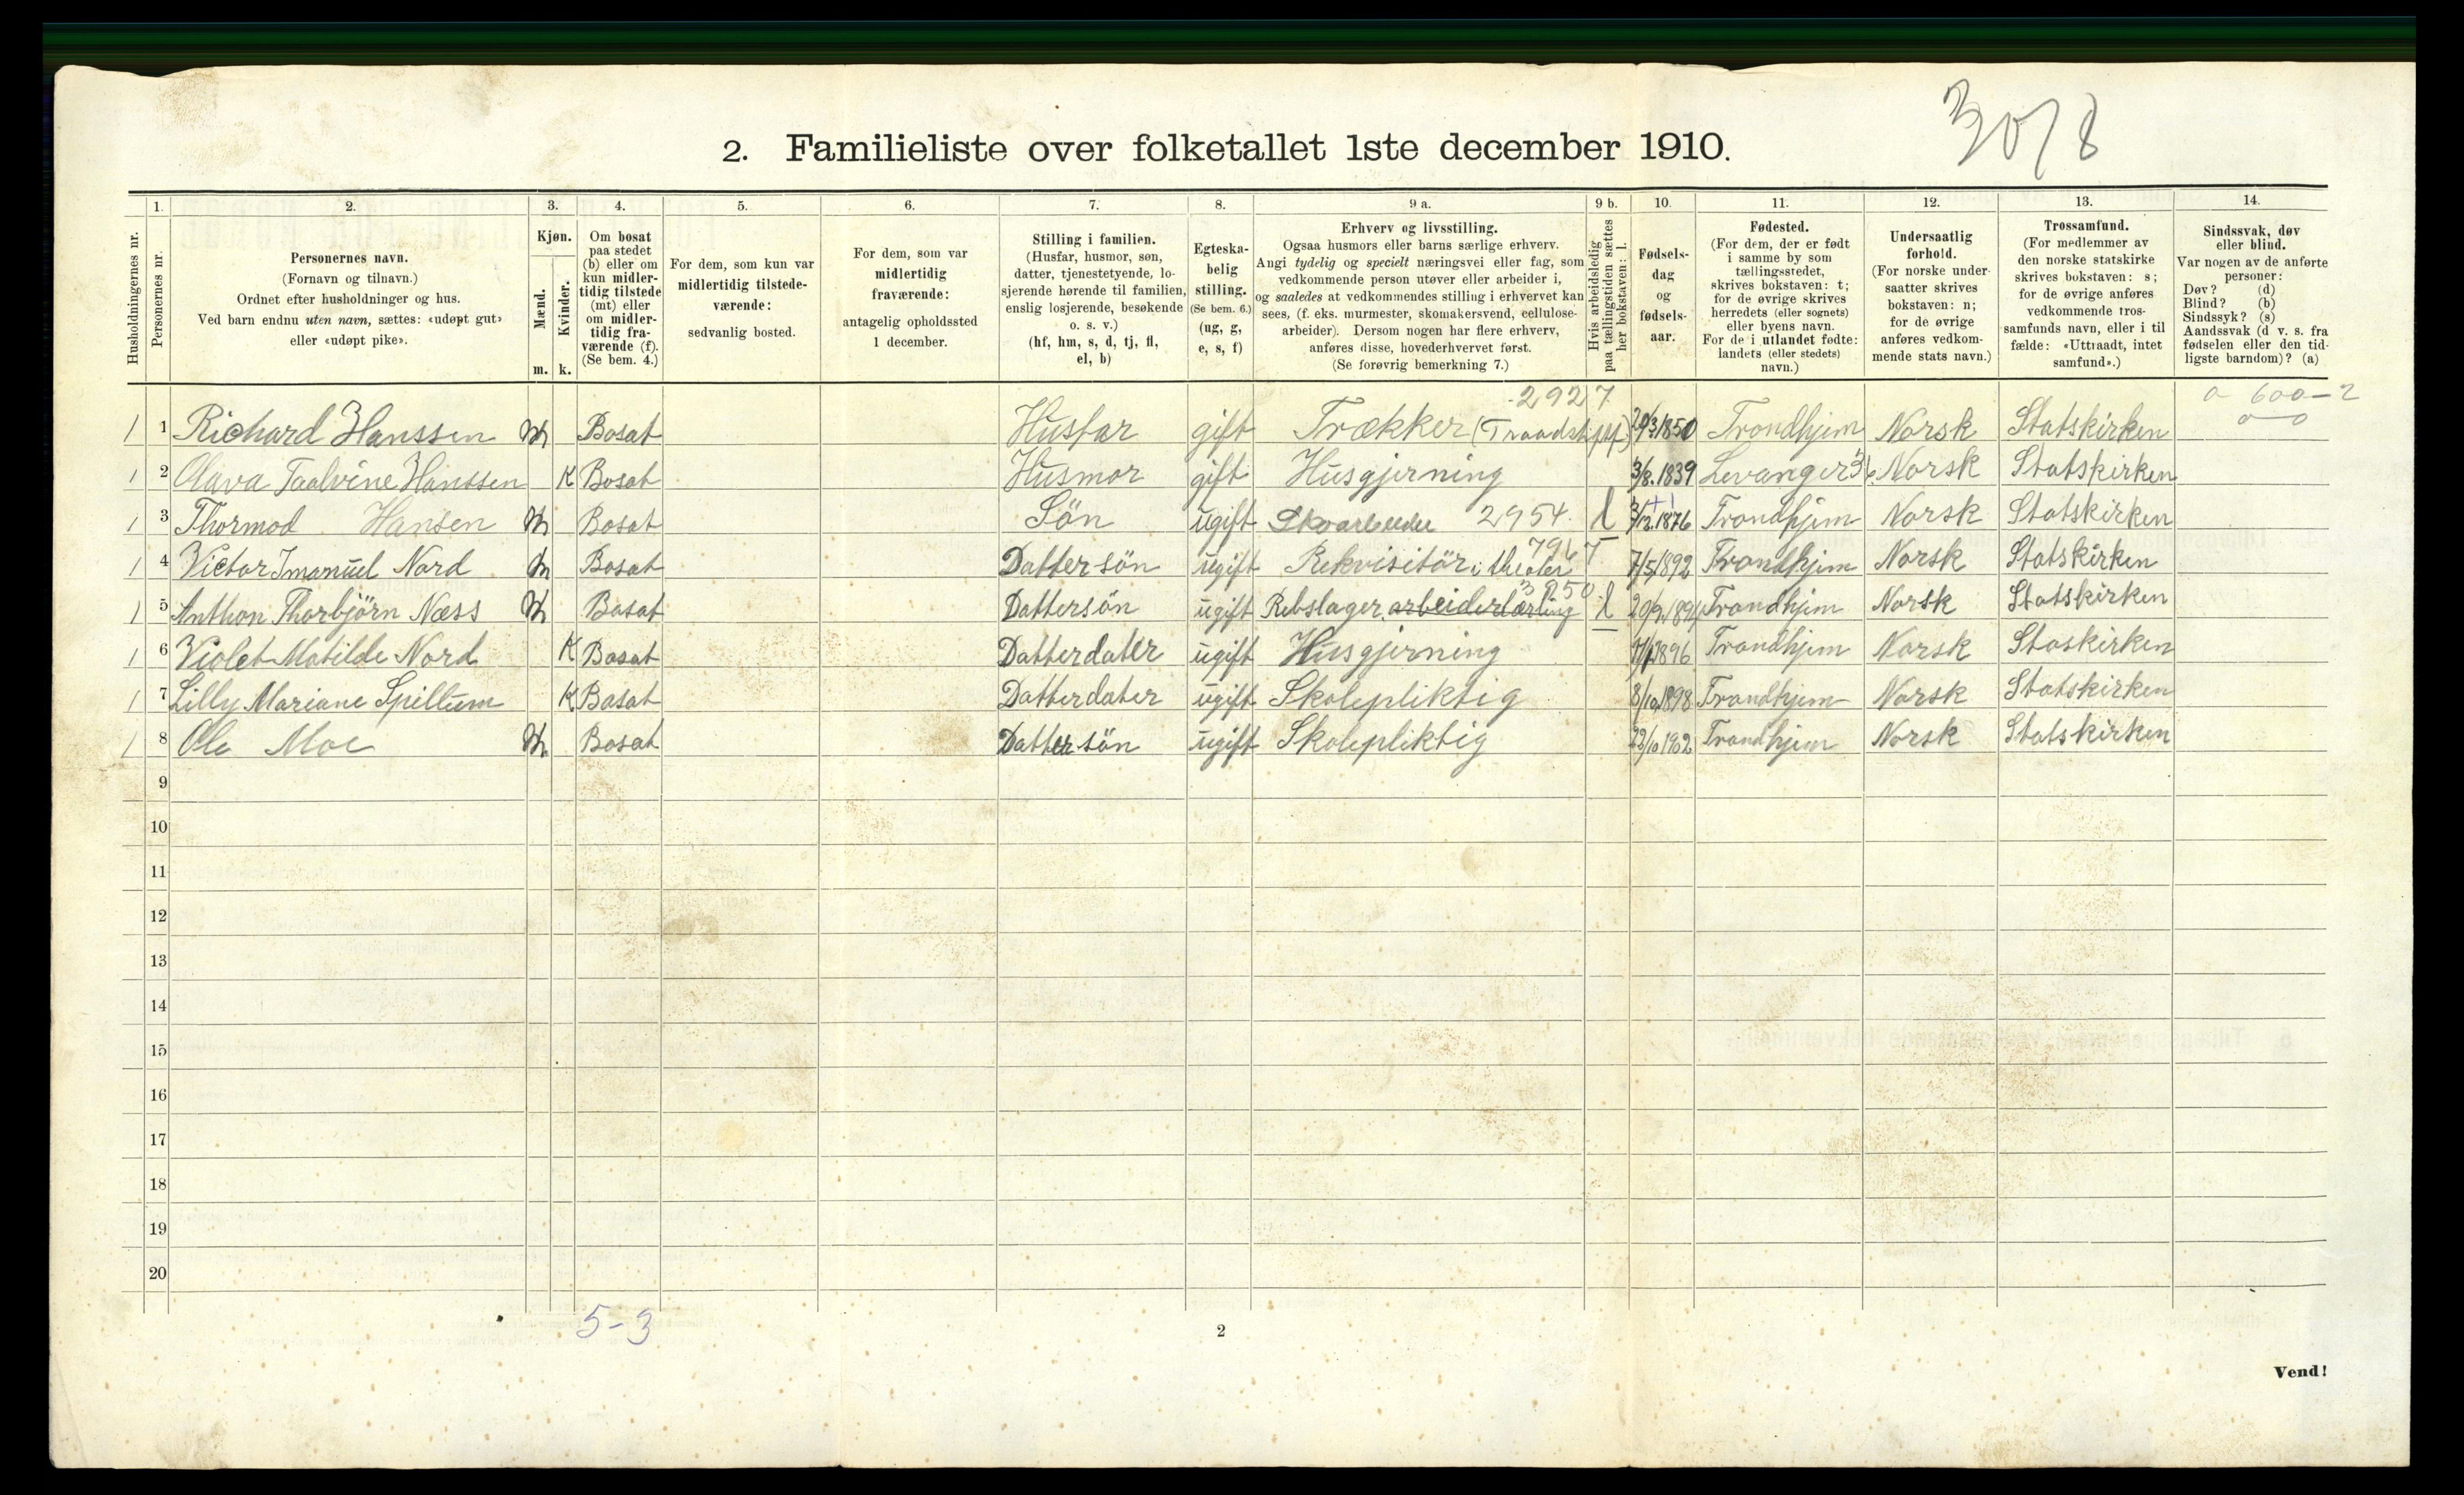 3078
2. Familieliste over folketallet 1ste december 1910.
1. 2. 3. 4. 5. 6. 7. 8. 9 a. 9 b. 10. 11. 12. 13. 14.
Husholdningernes nr.
Personernes nr.
Personernes navn.
(Fornavn og tilnavn.)
Ordnet efter husholdninger og hus.
Ved barn endnu uten navn, sættes: «udøpt gut»
eller «udøpt pike».
Kjøn.
Mænd.
Kvinder.
m. k.
Om bosat
paa stedet
(b) eller om
kun midler-
tidig tilstede
(mt) eller
om midler-
tidig fra-
værende (f).
(Se bem. 4.)
For dem, som kun var
midlertidig tilstede-
værende:
sedvanlig bosted.
For dem, som var
midlertidig
fraværende:
antagelig opholdssted
1 december.
Stilling i familien.
(Husfar, husmor, søn,
datter, tjenestetyende, lo-
sjerende hørende til familien,
enslig losjerende, besøkende
o. s. v.)
(hf, hm, s, d, tj, fl,
el, b)
Egteska-
belig
stilling.
(Se bem. 6.)
(ug, g,
e, s, f)
Erhverv og livsstilling.
Ogsaa husmors eller barns særlige erhverv.
Angi tydelig og specielt næringsvei eller fag, som
vedkommende person utøver eller arbeider i,
og saaledes at vedkommendes stilling i erhvervet kan
sees, (f. eks. murmester, skomakersvend, cellulose-
arbeider). Dersom nogen har flere erhverv,
anføres disse, hovederhvervet først.
(Se forøvrig bemerkning 7.)
Hvis arbeidsledig
paa tællingstiden sættes
her bokstaven: l.
Fødsels-
dag
og
fødsels-
aar.
Fødested.
(For dem, der er født
i samme by som
tællingsstedet,
skrives bokstaven: t;
for de øvrige skrives
herredets (eller sognets)
eller byens navn.
For de i utlandet fødte:
landets (eller stedets)
navn.)
Undersaatlig
forhold.
(For norske under-
saatter skrives
bokstaven: n;
for de øvrige
anføres vedkom-
mende stats navn.)
Trossamfund.
(For medlemmer av
den norske statskirke
skrives bokstaven: s;
for de øvrige anføres
vedkommende tros-
samfunds navn, eller i til
fælde: «Uttraadt, intet
samfund».)
Sindssvak, døv
eller blind.
Var nogen av de anførte
personer:
Døv? (d)
Blind? (b)
Sindssyk? (s)
Aandssvak (d v. s. fra
fødselen eller den tid-
ligste barndom)? (a)
2927 0-600-2
1 1 Richard Hanssen M Bosat Husfar gift Trækker 20/3 1850 Trondhjem Norsk Statskirken 0-0
1 2 Hanssen K Bosat Husmor gift Husgjerning 3/8. 1839 Levanger Norsk Statskirken
1 3 Thormod Hansen M Bosat Sön ugift Skoarbeider 2954 l 3/12. 1876 Trondhjem Norsk Statskirken
1 4 Victor Imanuel Nord M Bosat Dattersön ugift Rekvisitör i theater 7/5 1892 Trondhjem Norsk Statskirken
1 5 Anthon Thorbjörn Næss M Bosat Dattersön ugift Rebslager arbeiderlærling l Trondhjem Norsk Statskirken
1 6 Violet Matilde Nord K Bosat Datterdater ugift Husgjerning 1896 Trondhjem Norsk Staskirken
1 7 Lilly Mariane Spillum K Bosat Datterdater ugift Skolepliktig 8/10 1898 Trondhjem Norsk Statskirken
1 8 Ole Moe M Bosat Dattersön ugift Skolepliktig 22/10 1902 Trondhjem Norsk Statskirken
9
10
11
12
13
14
15
16
17
18
19
20
5-3
2
Vend!